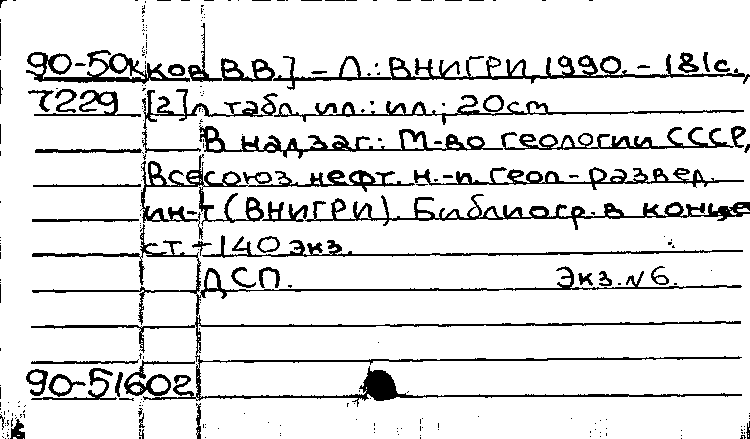 90-50к ков В.В.] – Л.: ВНИГРИ, 1990. – 181с.,
7229 [2]л табл, ил.: ил.; 20см
В надзаг.: М-во геологии СССР,
Всесоюз. нефт. н.-и. геол-развед.
ин-т (ВНИГРИ). Библиогр. в конце
ст. – 140 экз.
ДСП. Экз. №6.
90-51602